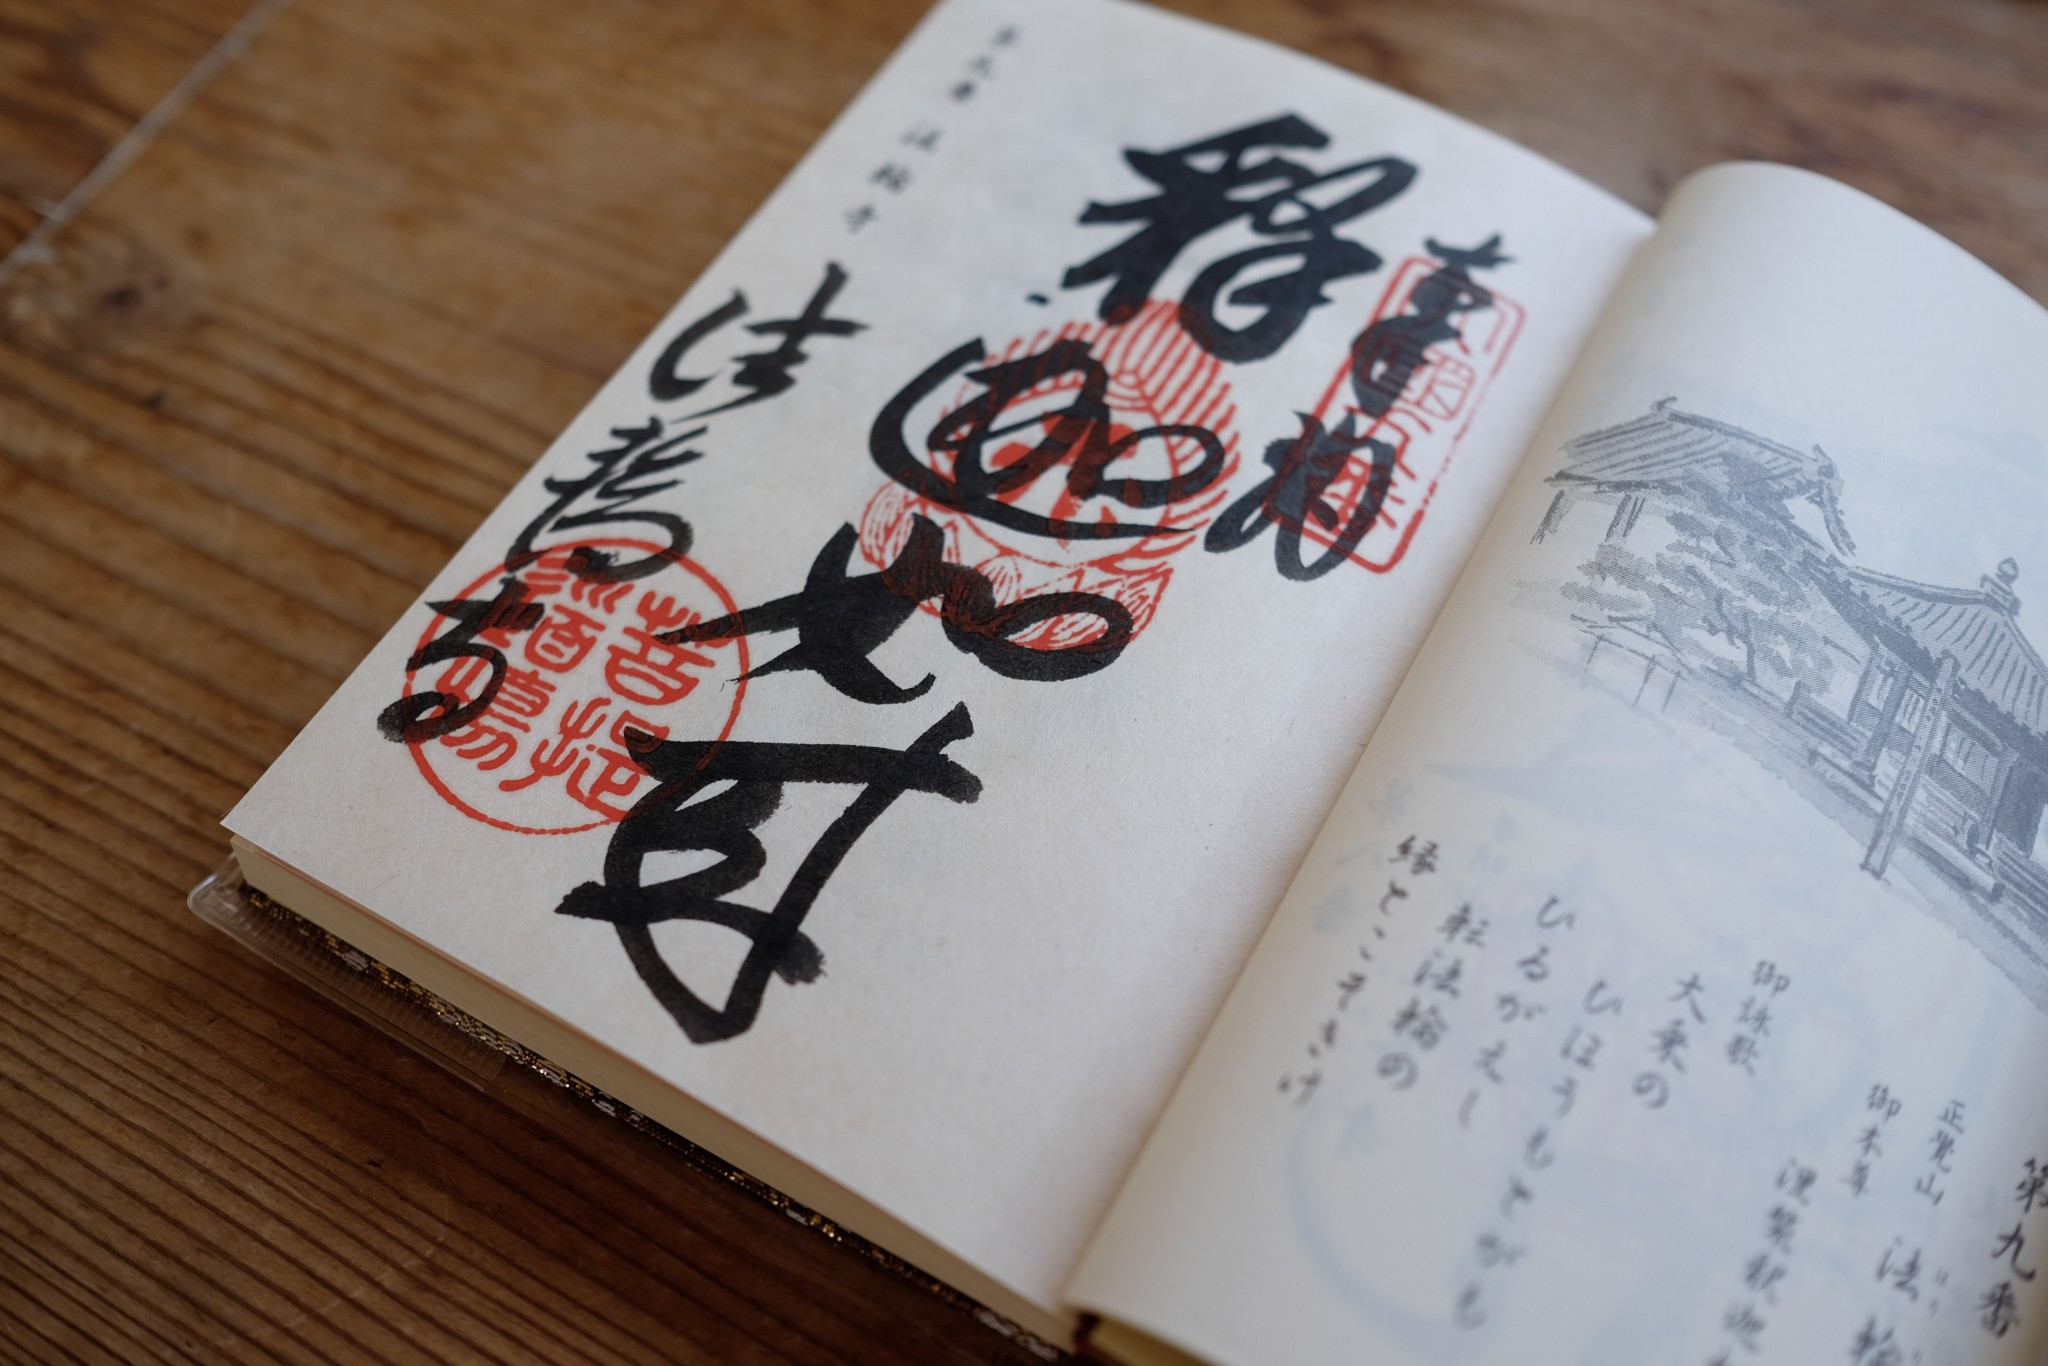 第九番
正覚山 法輪
ほう
御本尊 涅槃釈迦
御詠歌
大乗の
ひほうもとがも
ひるがえし
転法輪の
縁とこそきけ
奉拝
釈迦如来
法輪寺
第九番 法輪寺
菩提
道場